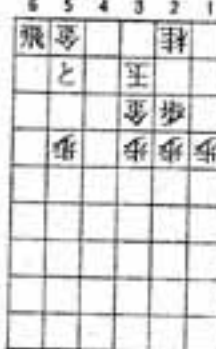 6 5 4 3 2 1
飛 金 桂
と 玉
金 歩
歩 歩 歩 歩